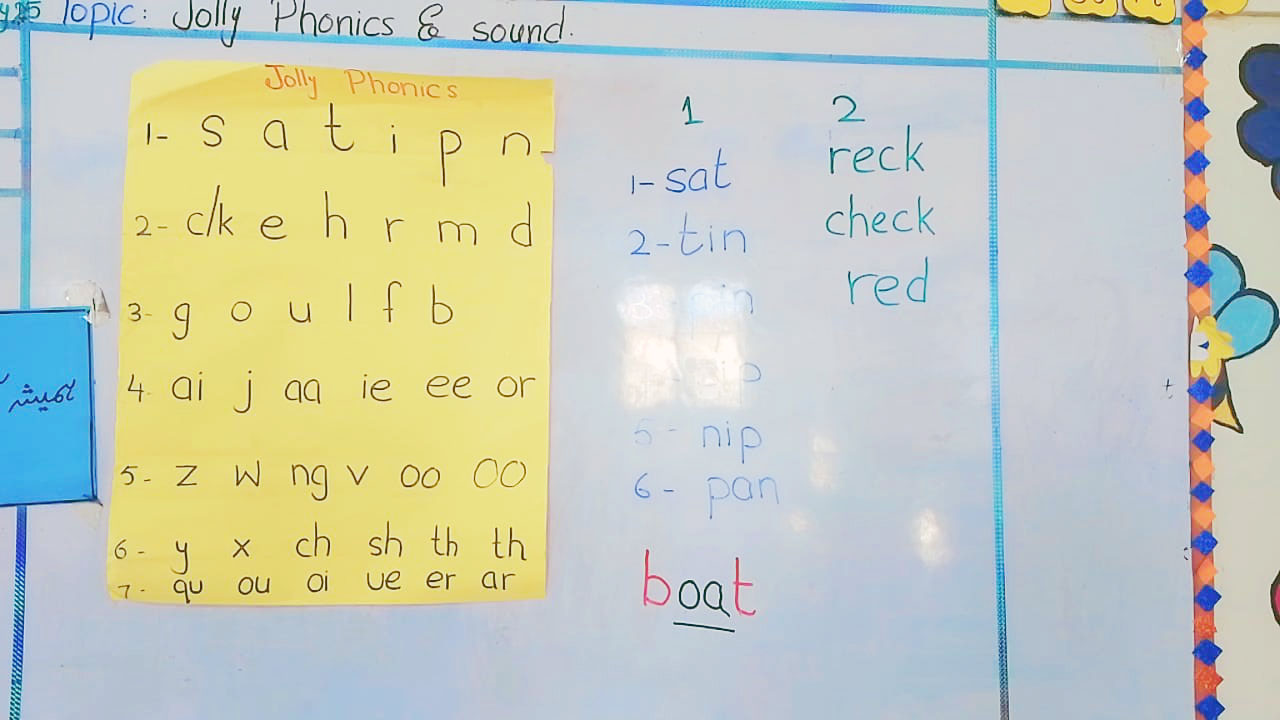 Topic: Jolly Phonics & sound.
Jolly Phonics
1- s a t i p n
2- c/k e h r m d
3- g o u l f b
4- ai j aa ie ee or
5- z w ng v oo oo
6- y x ch sh th th
7- qu ou oi ue er ar
1
1- sat
2- tin
5- nip
6- pan
boat
2
reck
check
red